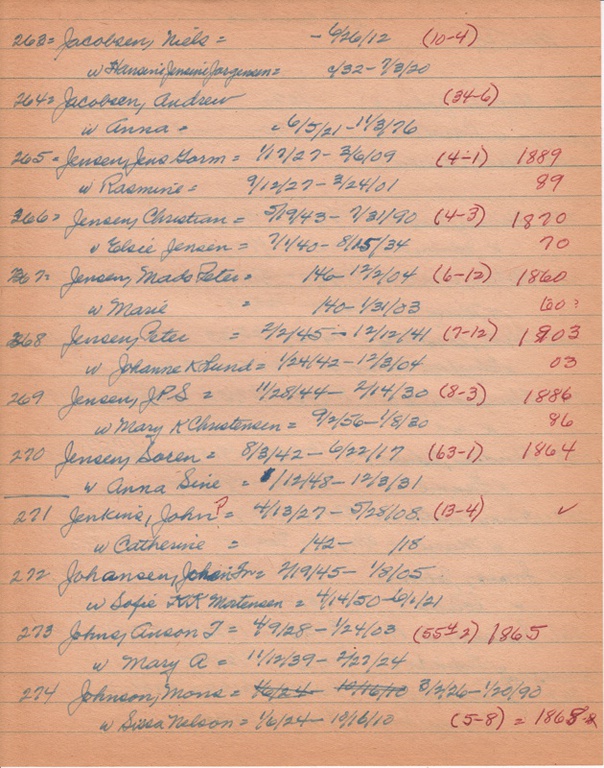 263= Jacobsen, Niels = - 6/26/12 (10-4)
w Hansine Jensine Jorgensen = /32 - 7/3/20
264= Jacobsen, Andrew (34-6)
w Anna = = 6/5/21 - 11/3/76
265= Jensen, Jens Gorm = 1/17/27 - 3/6/09 (4-1) 1889
w Rasmine = 9/12/27 - 3/24/01 89
266= Jensen, Christian = 5/19/43 - 7/31/90 (4-3) 1870
w Elsie Jensen = 7/1/40 - 8/15/34 70
267= Jensen, Mads Peter = /46 - 12/2/04 (6-12) 1860
w Marie = /40 - 1/31/03 60?
268 Jensen, Peter = 2/2/45 - 12/12/41 (7-12) 1903
w Johanne K Lund = 1/24/42 - 12/3/04 03
269 Jensen, J.P.S = 11/28/44 - 2/14/30 (8-3) 1886
w Mary K Christensen = 9/2/56 - 1/8/30 86
270 Jensen, Soren = 8/3/42 - 6/22/17 (63-1) 1864
w Anna Sine = /12/48 - 12/3/31
271 Jenkins, John P = 4/13/27 - 5/28/08 (13-4) ✓
w Catherine = /42 - /18
272 Johansen, Johan Fr = 2/19/45 - 1/8/05
w Sofie KK Mortensen = 4/14/50 - 6/1/21
273 Johns, Anson T = 4/9/28 - 1/24/03 (55 1/2) 1865
w Mary A = 11/12/39 - 2/27/24
274 Johnson, Mons = 1/6/24 - 10/16/10 3/2/26 - 1/20/90
w Sissa Nelson = 1/6/24 - 10/16/10 (5-8) = 1868